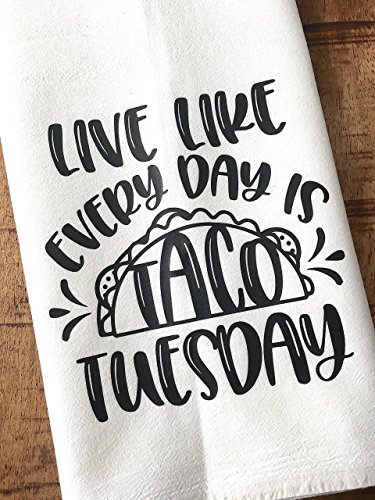 LIVE LIKE
EVERY DAY IS
TACO
TUESDAY